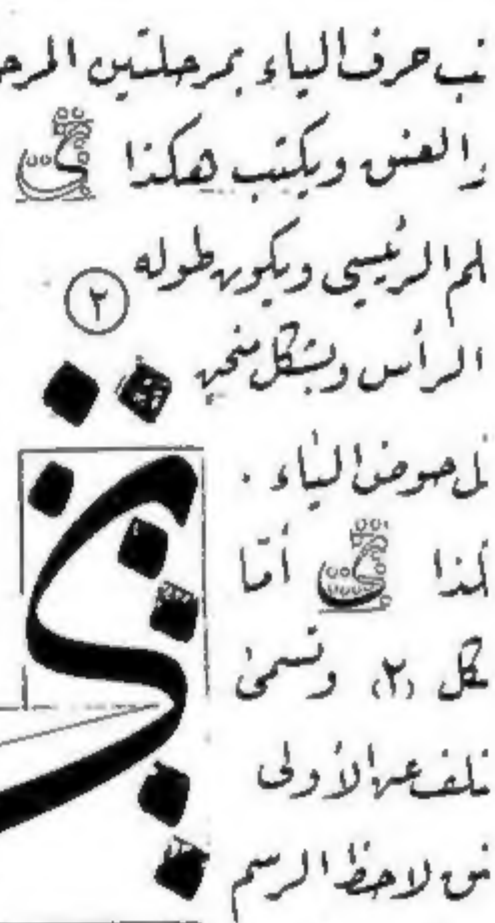 تب حرف الياء بمرحلتين المرح
والعنق ويكتب هكذا
لم الرئيسي ويكون طوله
٢
الرأس وبشكل منحن
ل حوض الياء .
كذا أمّا
كل (٢) وتسمى
تلف عن الأولى
لاحظ الرسم